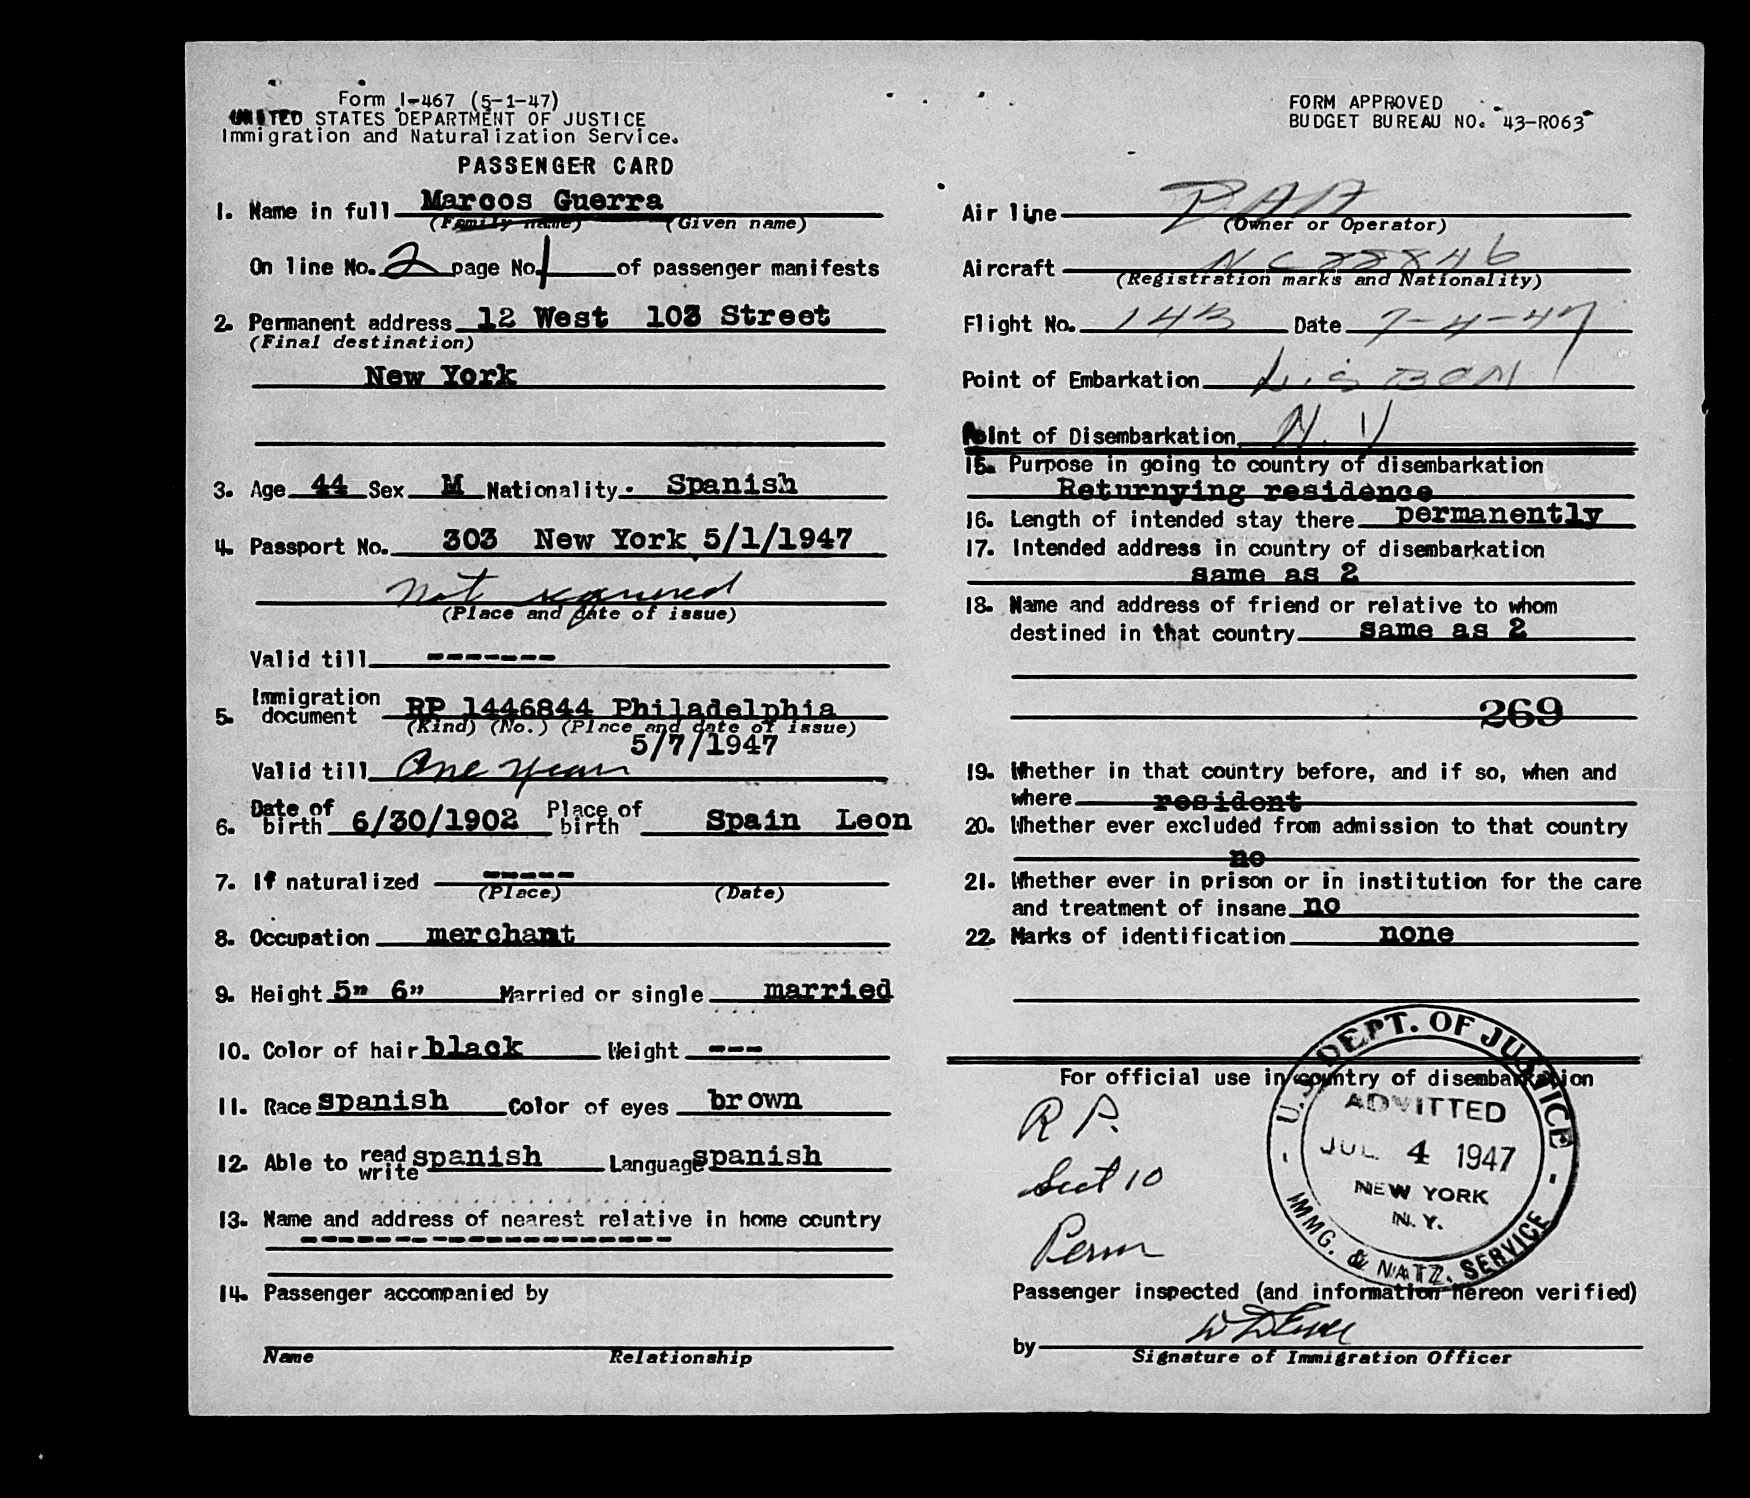 Form I-467 (5-1-47)
UNITED STATES DEPARTMENT OF JUSTICE
Immigration and Naturalization Service.
PASSENGER CARD
1. Name in full Marcos Guerra
(Family name) (Given name)
On line No. 2 page No. 1 of passenger manifests
2. Permanent address 12 West 103 Street
(Final destination)
New York
3. Age 44 Sex M Nationality Spanish
4. Passport No. 303 New York 5/1/1947
not required
(Place and date of issue)
Valid till -------
5. Immigration document RP 1446844 Philadelphia
(Kind) (No.) (Place and date of issue)
5/7/1947
Valid till One year
6. Date of birth 6/30/1902 Place of birth Spain Leon
7. If naturalized -----
(Place) (Date)
8. Occupation merchant
9. Height 5" 6" Married or single married
10. Color of hair black Weight ---
11. Race spanish Color of eyes brown
12. Able to read write spanish Language spanish
13. Name and address of nearest relative in home country
--------------------
14. Passenger accompanied by
Name Relationship
FORM APPROVED
BUDGET BUREAU NO. 43-R063
Air line PAA
(Owner or Operator)
Aircraft NC 88846
(Registration marks and Nationality)
Flight No. 143 Date 7-4-47
Point of Embarkation LISBON
Point of Disembarkation N.Y
15. Purpose in going to country of disembarkation
Returnying residence
16. Length of intended stay there permanently
17. Intended address in country of disembarkation
same as 2
18. Name and address of friend or relative to whom
destined in that country same as 2
269
19. Whether in that country before, and if so, when and
where resident
20. Whether ever excluded from admission to that country
no
21. Whether ever in prison or in institution for the care
and treatment of insane no
22. Marks of identification none
For official use in country of disembarkation
R P.
Sect 10
Perm
U.S. DEPT. OF JUSTICE
ADMITTED
JUL 4 1947
NEW YORK
N.Y.
IMMG. & NATZ. SERVICE
Passenger inspected (and information hereon verified)
by
Signature of Immigration Officer